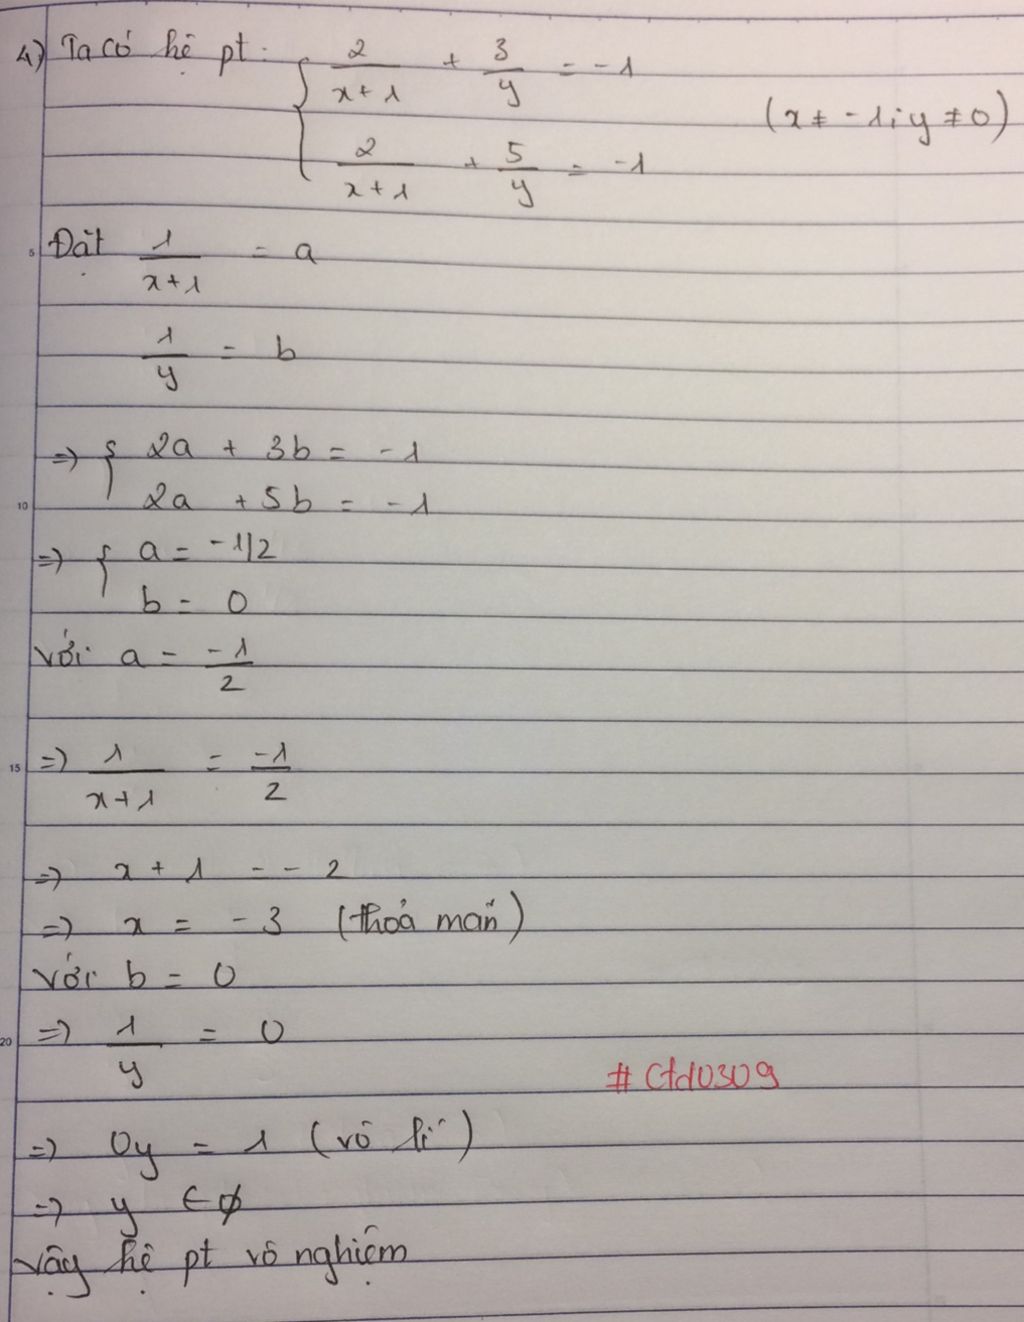 4) Ta có hệ pt: { 2/(x+1) + 3/y = -1
(x ≠ -1; y ≠ 0)
2/(x+1) + 5/y = -1
5 Đặt 1/(x+1) = a
1/y = b
=> { 2a + 3b = -1
10 2a + 5b = -1
=> { a = -1/2
b = 0
với a = -1/2
15 => 1/(x+1) = -1/2
=> x + 1 = - 2
=> x = -3 (thoả mãn)
với b = 0
20 => 1/y = 0
#Ctd0309
=> 0y = 1 (vô lí)
=> y ∈ ∅
Vậy hệ pt vô nghiệm